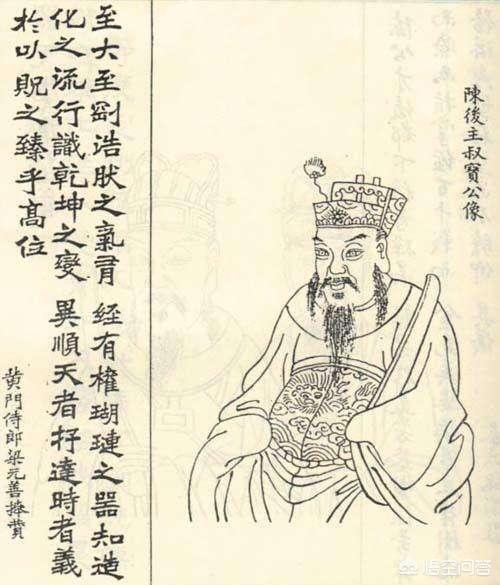 陳後主叔寶公像
至大至剛浩肰之氣有經有權瑚璉之器知造
化之流行識乾坤之變異順天者存達時者義
於以貺之臻乎高位
黄門侍郎梁元善拜贊
悟空问答